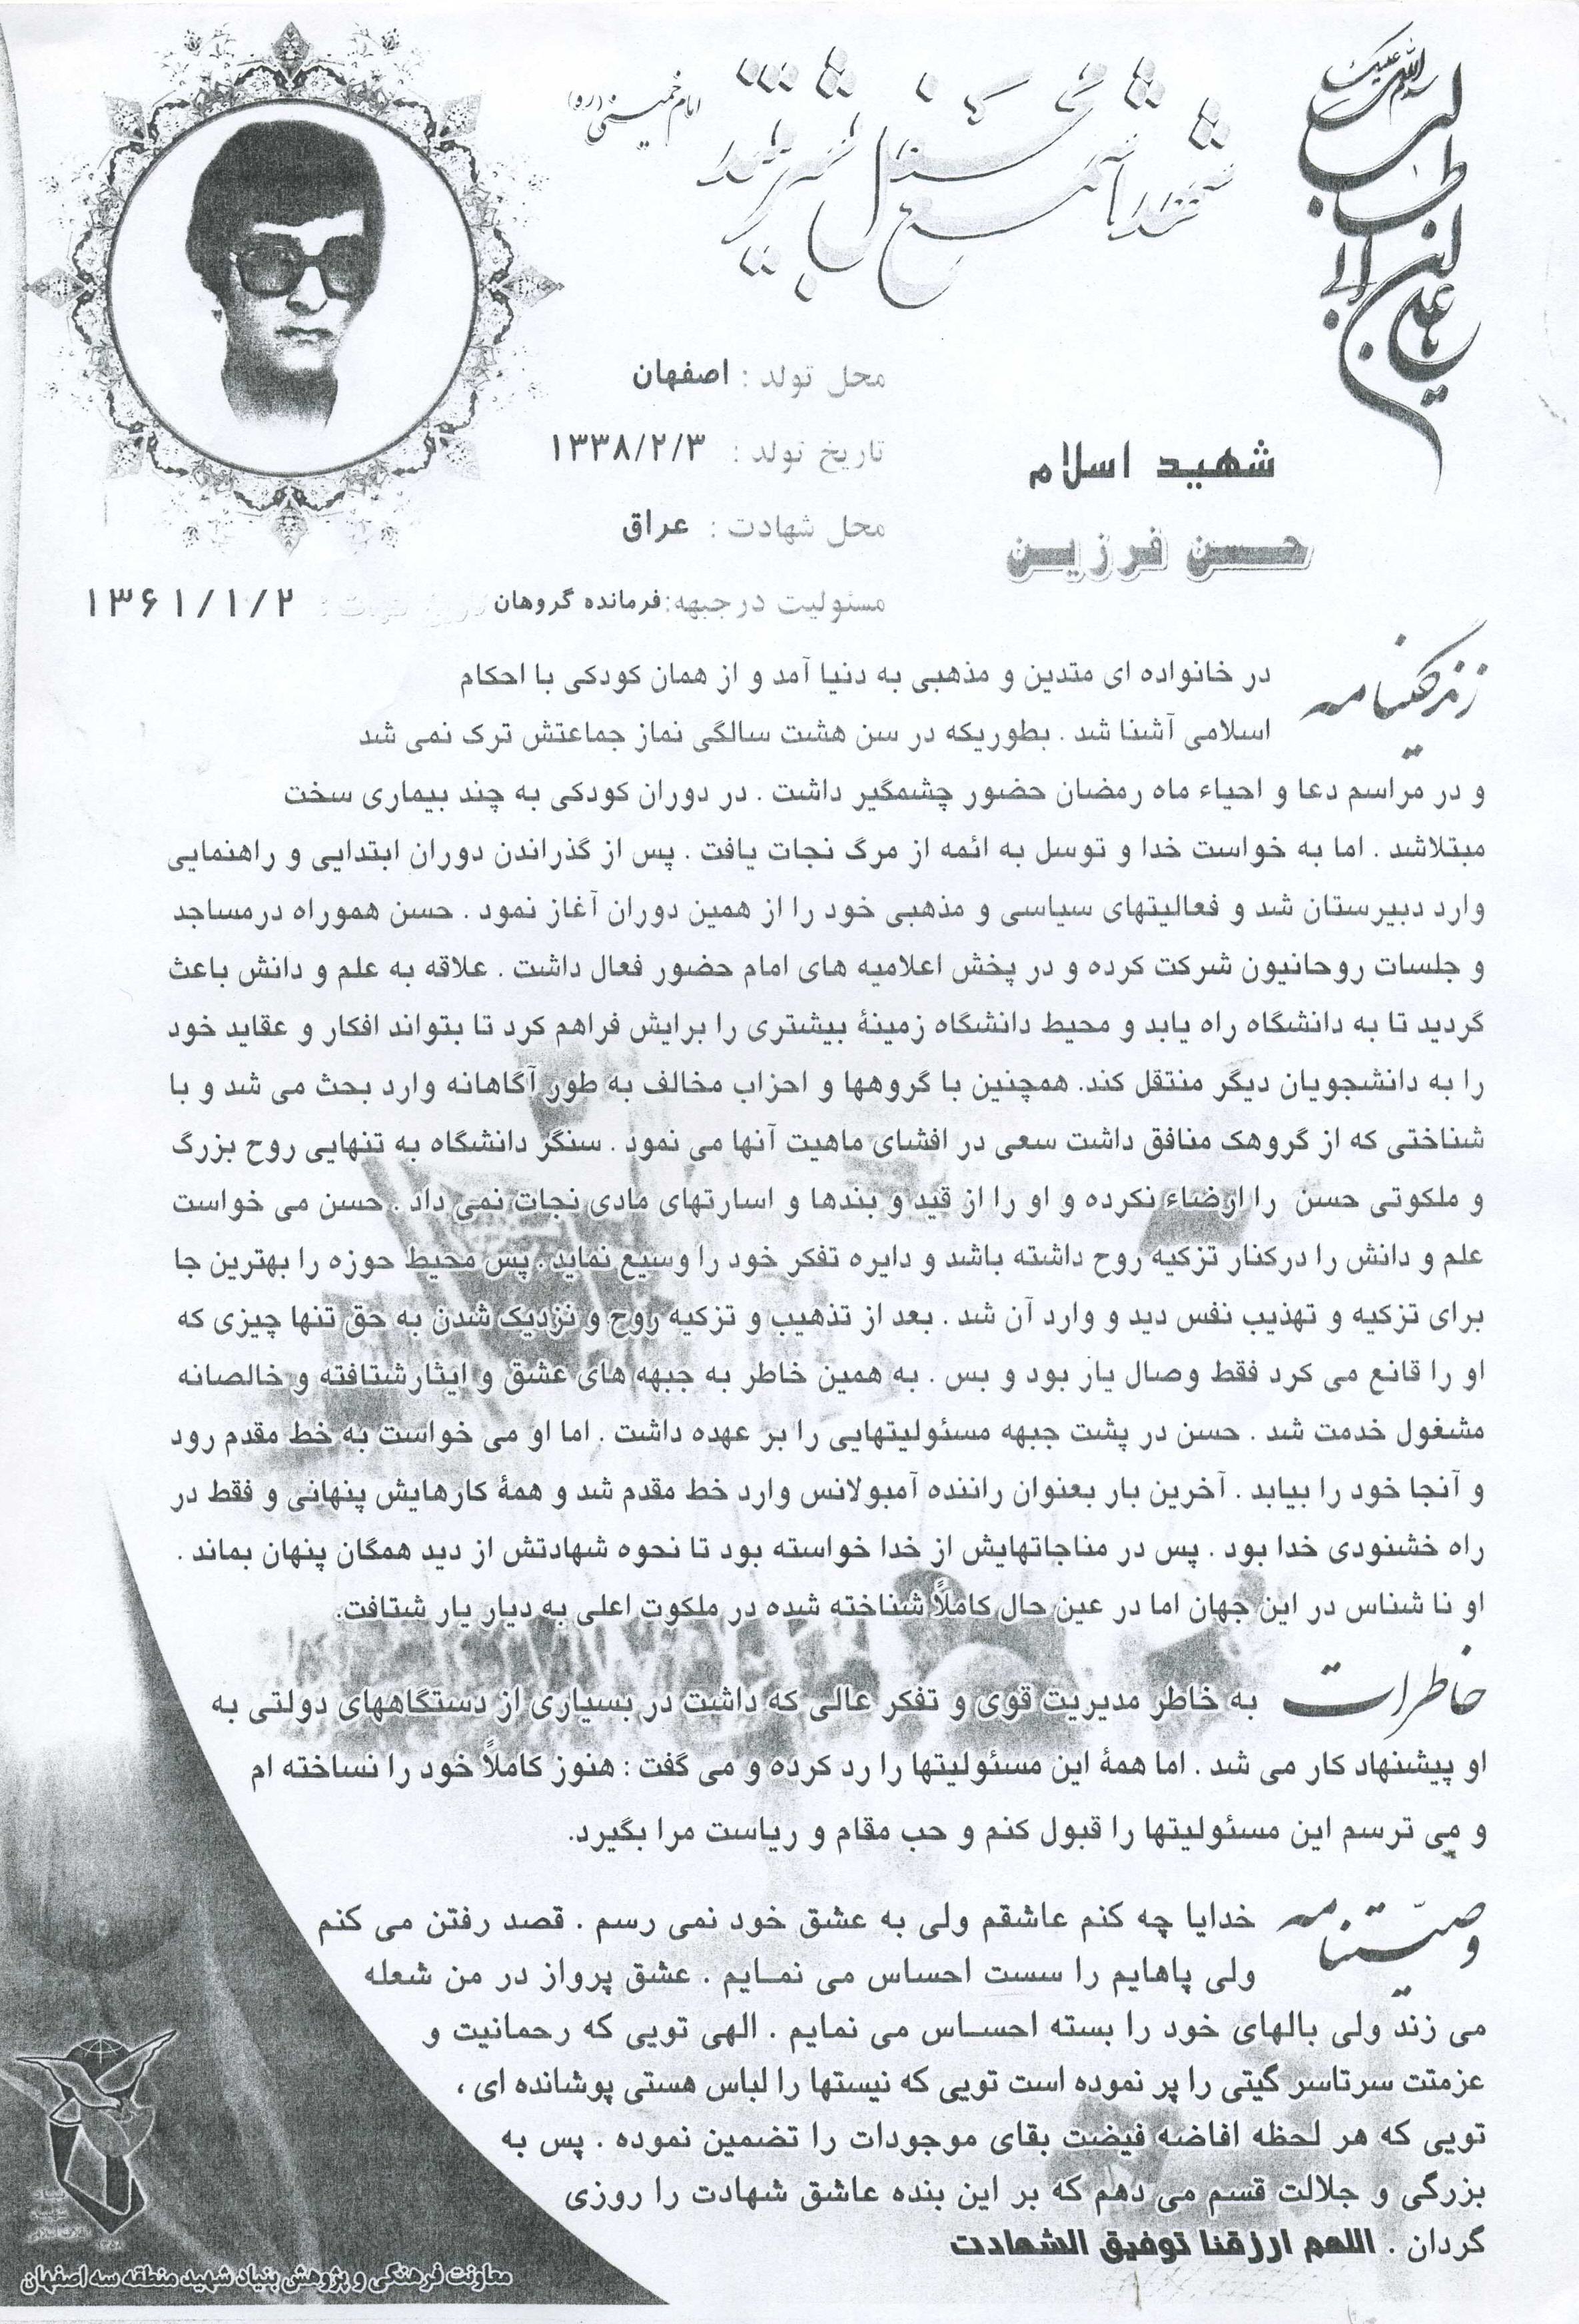 السلام علیک
یا علی بن ابی طالب
شهدا شمع محفل بشریتند
امام خمینی (ره)
محل تولد : اصفهان
تاریخ تولد : ۱۳۳۸/۲/۳
شهید اسلام
محل شهادت : عراق
حسن فرزین
مسئولیت درجبهه:فرمانده گروهان
۱۳۶۱/۱/۲
زندگینامه
در خانواده ای متدین و مذهبی به دنیا آمد و از همان کودکی با احکام
اسلامی آشنا شد . بطوریکه در سن هشت سالگی نماز جماعتش ترک نمی شد
و در مراسم دعا و احیاء ماه رمضان حضور چشمگیر داشت . در دوران کودکی به چند بیماری سخت
مبتلاشد . اما به خواست خدا و توسل به ائمه از مرگ نجات یافت . پس از گذراندن دوران ابتدایی و راهنمایی
وارد دبیرستان شد و فعالیتهای سیاسی و مذهبی خود را از همین دوران آغاز نمود . حسن هموراه درمساجد
و جلسات روحانیون شرکت کرده و در پخش اعلامیه های امام حضور فعال داشت . علاقه به علم و دانش باعث
گردید تا به دانشگاه راه یابد و محیط دانشگاه زمینهٔ بیشتری را برایش فراهم کرد تا بتواند افکار و عقاید خود
را به دانشجویان دیگر منتقل کند. همچنین با گروهها و احزاب مخالف به طور آگاهانه وارد بحث می شد و با
شناختی که از گروهک منافق داشت سعی در افشای ماهیت آنها می نمود . سنگر دانشگاه به تنهایی روح بزرگ
و ملکوتی حسن را ارضاء نکرده و او را از قید و بندها و اسارتهای مادی نجات نمی داد . حسن می خواست
علم و دانش را درکنار تزکیه روح داشته باشد و دایره تفکر خود را وسیع نماید . پس محیط حوزه را بهترین جا
برای تزکیه و تهذیب نفس دید و وارد آن شد . بعد از تذهیب و تزکیه روح و نزدیک شدن به حق تنها چیزی که
او را قانع می کرد فقط وصال یار بود و بس . به همین خاطر به جبهه های عشق و ایثارشتافته و خالصانه
مشغول خدمت شد . حسن در پشت جبهه مسئولیتهایی را بر عهده داشت . اما او می خواست به خط مقدم رود
و آنجا خود را بیابد . آخرین بار بعنوان راننده آمبولانس وارد خط مقدم شد و همهٔ کارهایش پنهانی و فقط در
راه خشنودی خدا بود . پس در مناجاتهایش از خدا خواسته بود تا نحوه شهادتش از دید همگان پنهان بماند .
او نا شناس در این جهان اما در عین حال کاملاً شناخته شده در ملکوت اعلی به دیار یار شتافت.
خاطرات
به خاطر مدیریت قوی و تفکر عالی که داشت در بسیاری از دستگاههای دولتی به
او پیشنهاد کار می شد . اما همهٔ این مسئولیتها را رد کرده و می گفت : هنوز کاملاً خود را نساخته ام
و می ترسم این مسئولیتها را قبول کنم و حب مقام و ریاست مرا بگیرد.
وصیتنامه
خدایا چه کنم عاشقم ولی به عشق خود نمی رسم . قصد رفتن می کنم
ولی پاهایم را سست احساس می نمایم . عشق پرواز در من شعله
می زند ولی بالهای خود را بسته احساس می نمایم . الهی تویی که رحمانیت و
عزمتت سرتاسر گیتی را پر نموده است تویی که نیستها را لباس هستی پوشانده ای ،
تویی که هر لحظه افاضه فیضت بقای موجودات را تضمین نموده . پس به
بزرگی و جلالت قسم می دهم که بر این بنده عاشق شهادت را روزی
گردان . اللهم ارزقنا توفیق الشهادت
معاونت فرهنگی و پژوهش بنیاد شهید منطقه سه اصفهان